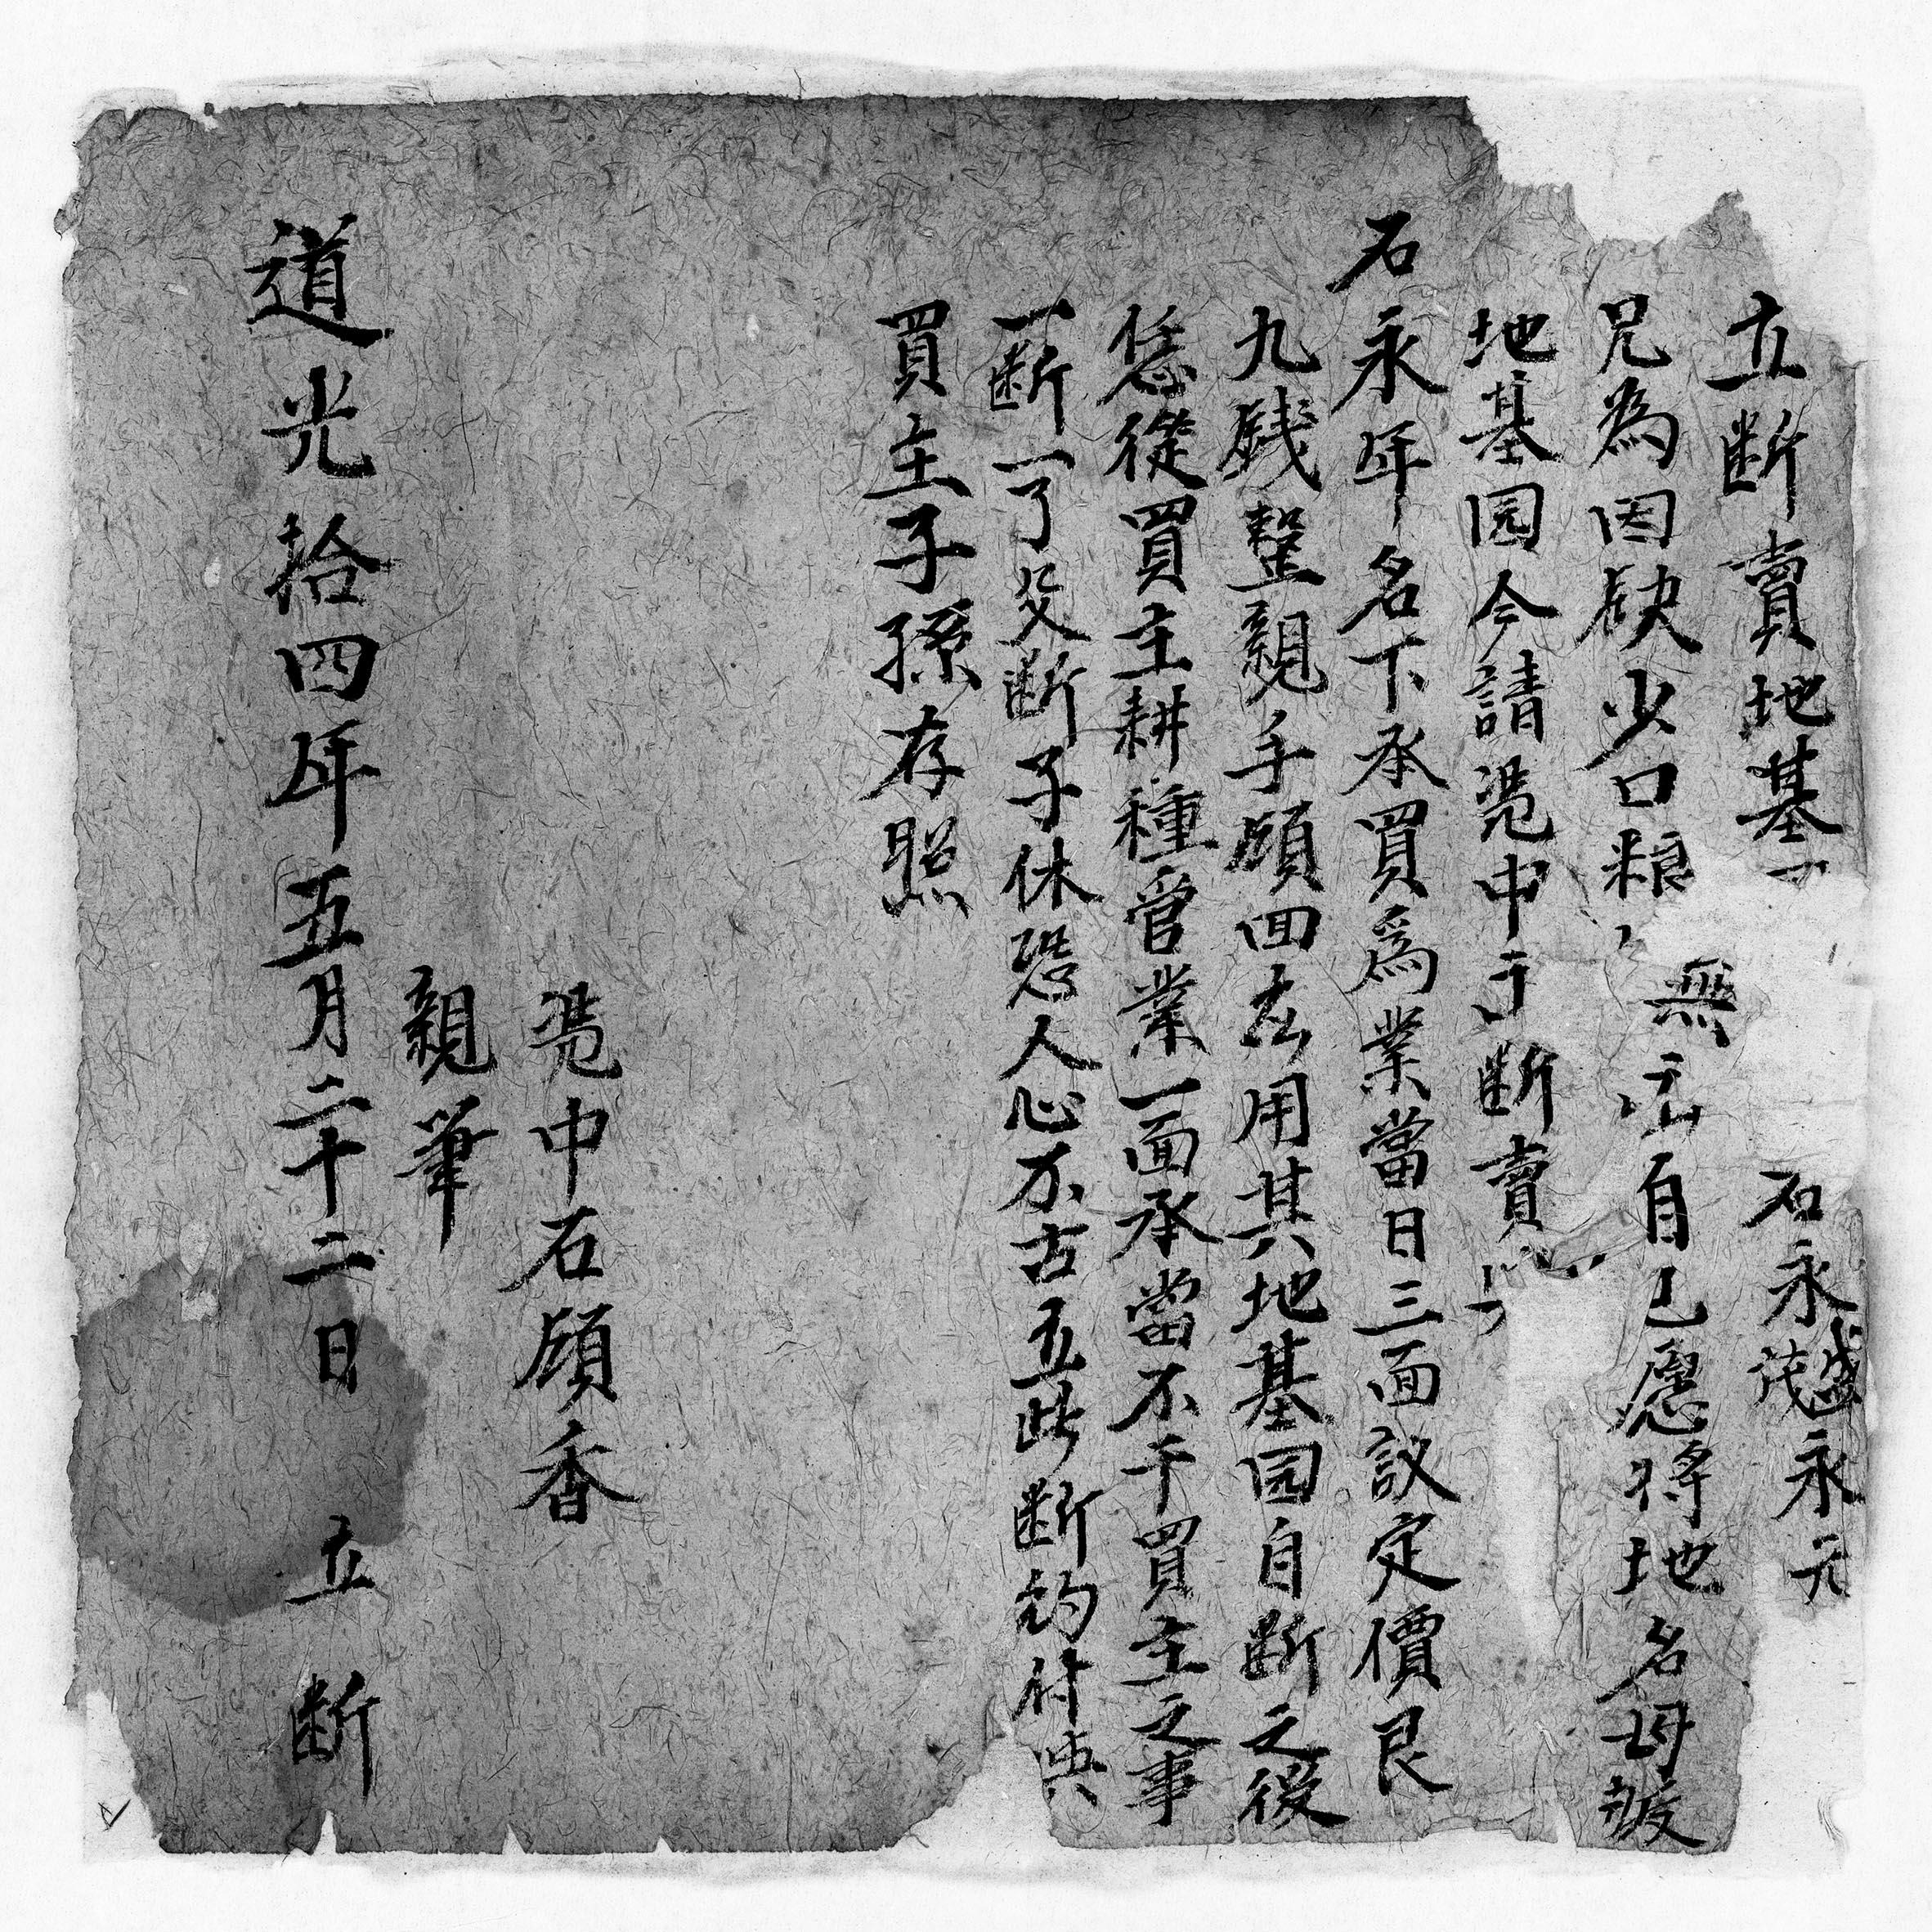 立断賣地基 石永盛茂永元
兄為因缺少口粮 無 自己愿將地名母
地基园今請凴中 断賣
石永年名下承買爲業當日三面議定價艮
九錢整親手領回去用其地基园自断之後
恁從買主耕種管業一面承當不干買主之事
一断一了父断子休恐人心不古立此断約付與
買主子孫存照
凴中石領香
親筆
道光拾四年五月二十二日 立断